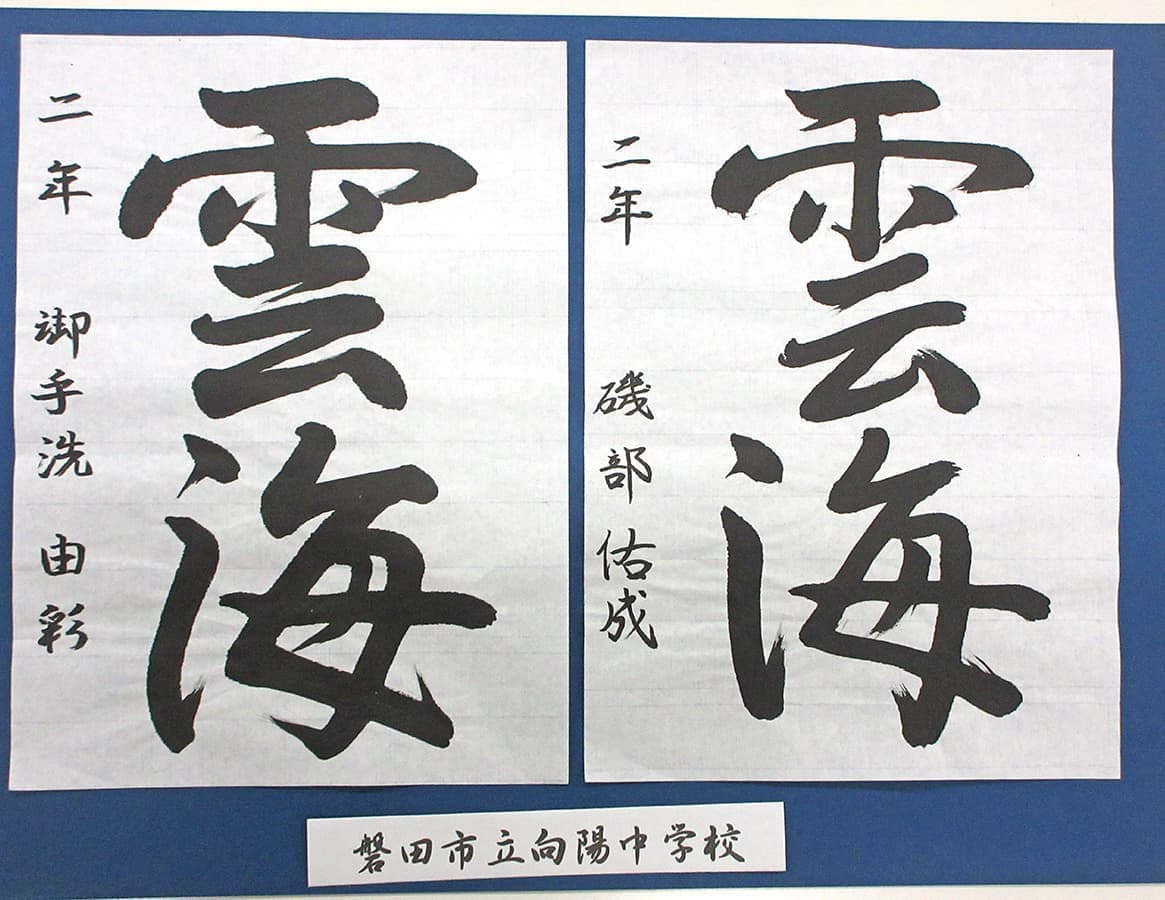 雲海
二年 磯部佑成
雲海
二年 御手洗由彩
磐田市立向陽中学校